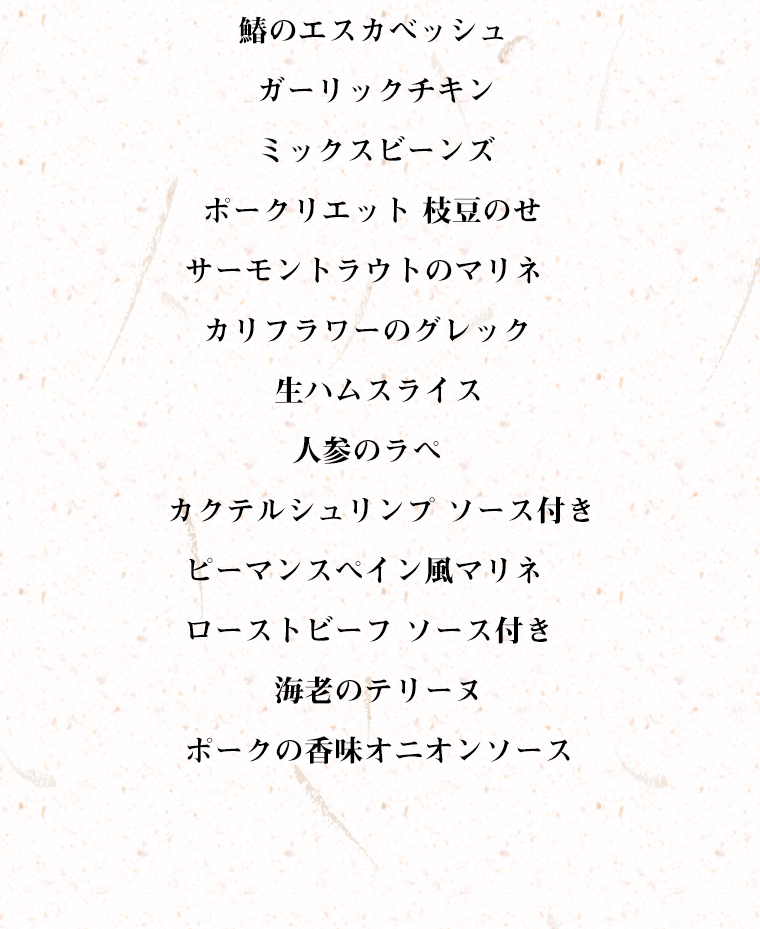 鰆のエスカベッシュ
ガーリックチキン
ミックスビーンズ
ポークリエット 枝豆のせ
サーモントラウトのマリネ
カリフラワーのグレック
生ハムスライス
人参のラペ
カクテルシュリンプ ソース付き
ピーマンスペイン風マリネ
ローストビーフ ソース付き
海老のテリーヌ
ポークの香味オニオンソース